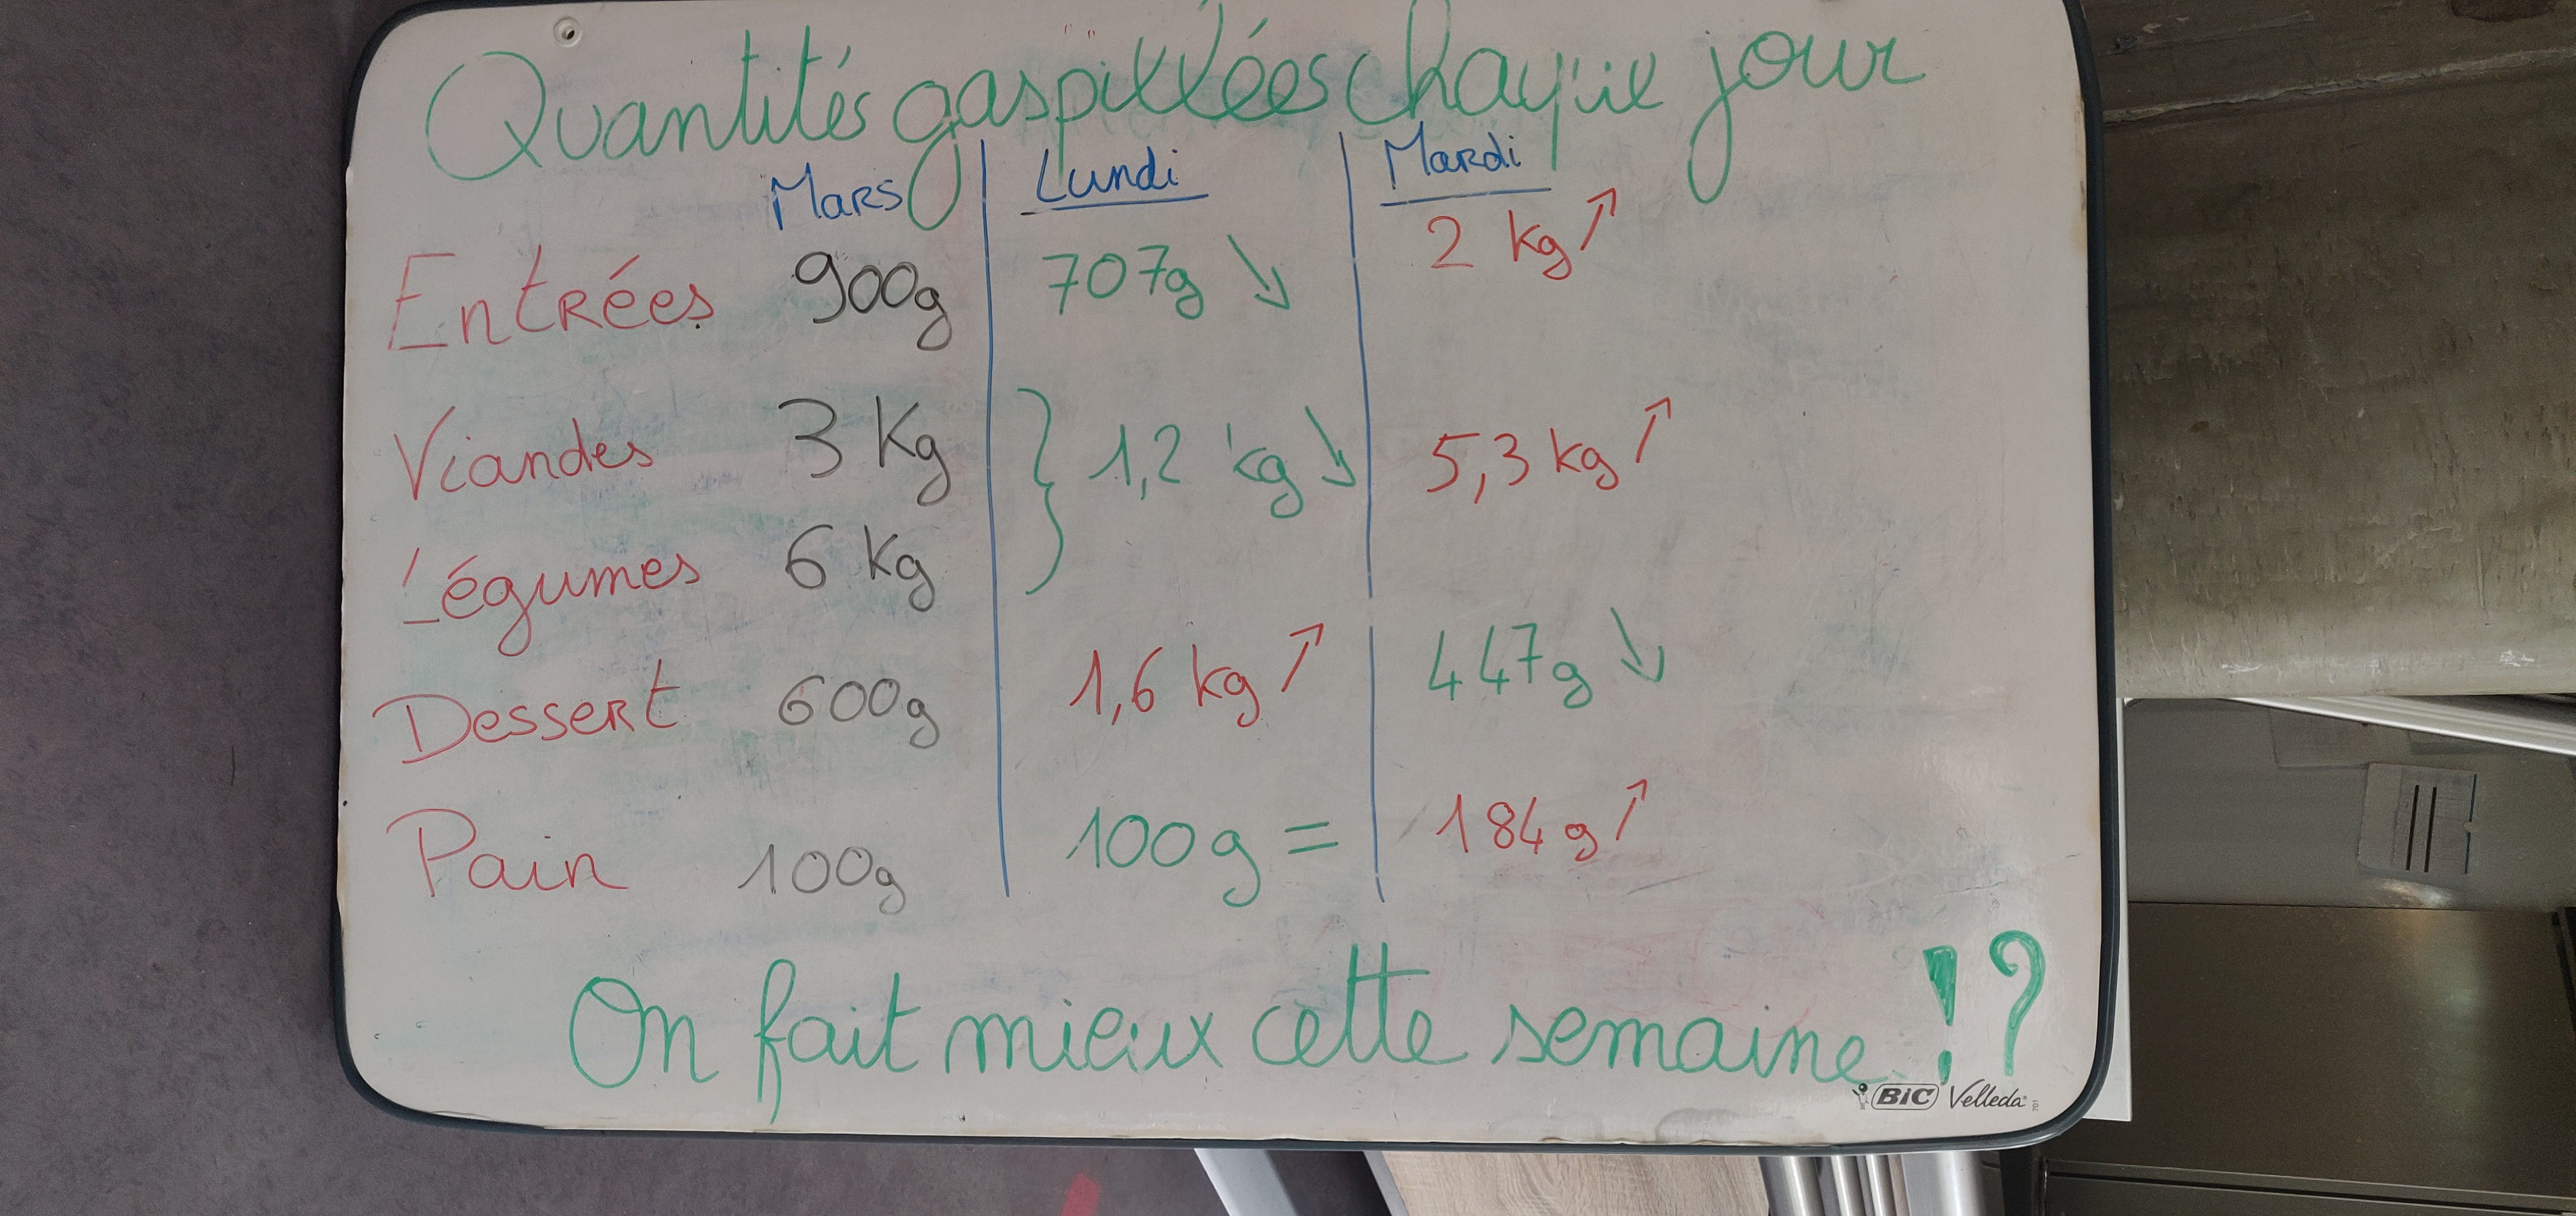 Quantités gaspillées chaque jour
Mars Lundi Mardi
Entrées 900g 707g ↘ 2 kg ↗
Viandes 3 Kg } 1,2 kg ↘ 5,3 kg ↗
Légumes 6 Kg
Dessert 600g 1,6 kg ↗ 447g ↘
Pain 100g 100g = 184g ↗
On fait mieux cette semaine !?
BIC Velleda